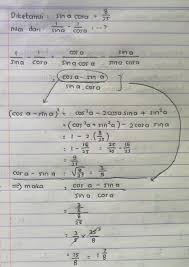 Diketahui : sina cosa = 8/25
Nilai dari : 1/sina - 1/cosa = ...?
1/sina - 1/cosa = cosa/sina cosa - sina/sina cosa
= cosa - sina / sina . cosa
(cosa - sina)² = cos²a - 2cosa sina + sin²a
= (cos²a + sin²a) - 2cosa sina
= 1 - 2 (8/25)
= 1 - 16/25 = 25/25 - 16/25
= 9/25
cosa - sina = √9/25 = 3/5
=> maka = cosa - sina / sina . cosa
= 3/5 / 8/25
= 3/5 × 25/8
= 15/8 = 1 7/8